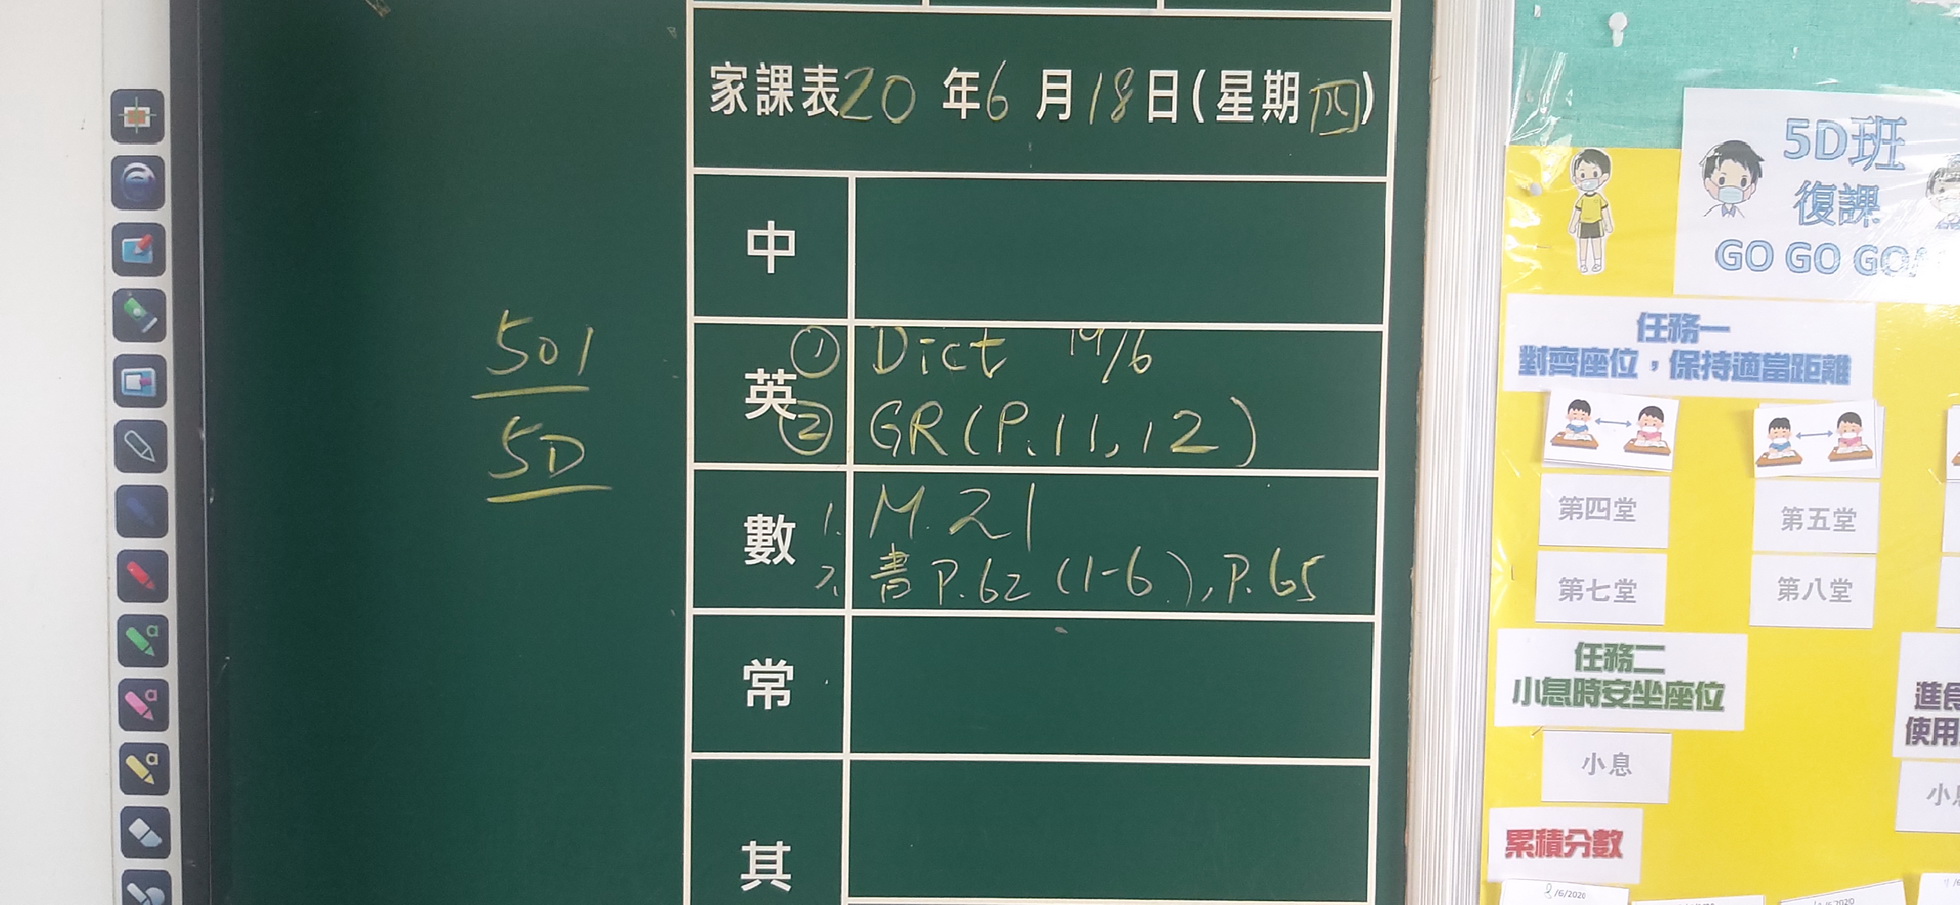 家課表20年6月18日(星期四)
中
英
① Dict 19/6
② GR(P.11,12)
數
1. M.21
2. 書P.62(1-6),P.65
常
其
501
5D
5D班
復課
GO GO GO
任務一
對齊座位，保持適當距離
第四堂
第五堂
第七堂
第八堂
任務二
小息時安坐座位
進食
使用
小息
小息
累積分數
/6/2020
/6/2020